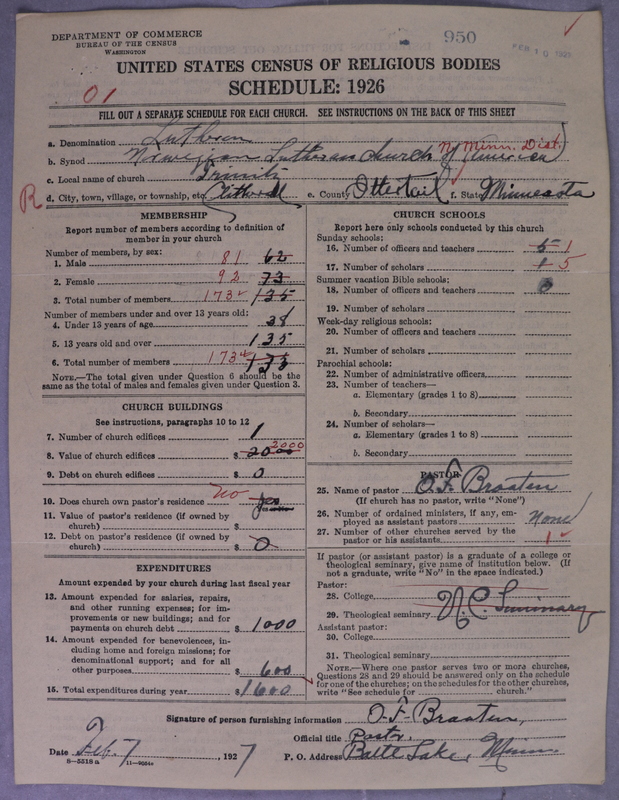 DEPARTMENT OF COMMERCE
BUREAU OF THE CENSUS
WASHINGTON
950
FEB 10 192
UNITED STATES CENSUS OF RELIGIOUS BODIES
SCHEDULE: 1926
01
FILL OUT A SEPARATE SCHEDULE FOR EACH CHURCH. SEE INSTRUCTIONS ON THE BACK OF THIS SHEET
a. Denomination Lutheran
N. Minn. Dist.
b. Synod Norwegian Lutheran Church of America
c. Local name of church Trinity
R d. City, town, village, or township, etc. Clitherall e. County Ottertail f. State Minnesota
MEMBERSHIP
Report number of members according to definition of
member in your church
Number of members, by sex:
1. Male 81 62
2. Female 92 73
3. Total number of members 173 135
Number of members under and over 13 years old:
4. Under 13 years of age 38
5. 13 years old and over 135
6. Total number of members 173
NOTE.—The total given under Question 6 should be the
same as the total of males and females given under Question 3.
CHURCH BUILDINGS
See instructions, paragraphs 10 to 12
7. Number of church edifices 1
8. Value of church edifices $ 2000 2000
9. Debt on church edifices $ 0
10. Does church own pastor's residence no yes
11. Value of pastor's residence (if owned by
church) $
12. Debt on pastor's residence (if owned by
church) $ 0
EXPENDITURES
Amount expended by your church during last fiscal year
13. Amount expended for salaries, repairs,
and other running expenses; for im-
provements or new buildings; and for
payments on church debt $ 1000
14. Amount expended for benevolences, in-
cluding home and foreign missions; for
denominational support; and for all
other purposes $ 600
15. Total expenditures during year $ 1600
CHURCH SCHOOLS
Report here only schools conducted by this church
Sunday schools:
16. Number of officers and teachers 5 1
17. Number of scholars 1 5
Summer vacation Bible schools:
18. Number of officers and teachers
19. Number of scholars
Week-day religious schools:
20. Number of officers and teachers
21. Number of scholars
Parochial schools:
22. Number of administrative officers
23. Number of teachers—
a. Elementary (grades 1 to 8)
b. Secondary
24. Number of scholars—
a. Elementary (grades 1 to 8)
b. Secondary
PASTOR
25. Name of pastor O. F. Braaten
(If church has no pastor, write "None")
26. Number of ordained ministers, if any, em-
ployed as assistant pastors None
27. Number of other churches served by the
pastor or his assistants 1
If pastor (or assistant pastor) is a graduate of a college or
theological seminary, give name of institution below. (If
not a graduate, write "No" in the space indicated.)
Pastor:
28. College
29. Theological seminary N. C. Seminary
Assistant pastor:
30. College
31. Theological seminary
NOTE.—Where one pastor serves two or more churches,
Questions 28 and 29 should be answered only on the schedule
for one of the churches; on the schedules for the other churches,
write "See schedule for church."
Signature of person furnishing information O. F. Braaten,
Official title Pastor,
Date Feb. 7, 1927 P. O. Address Battle Lake, Minn.
8-5518a 11-9034